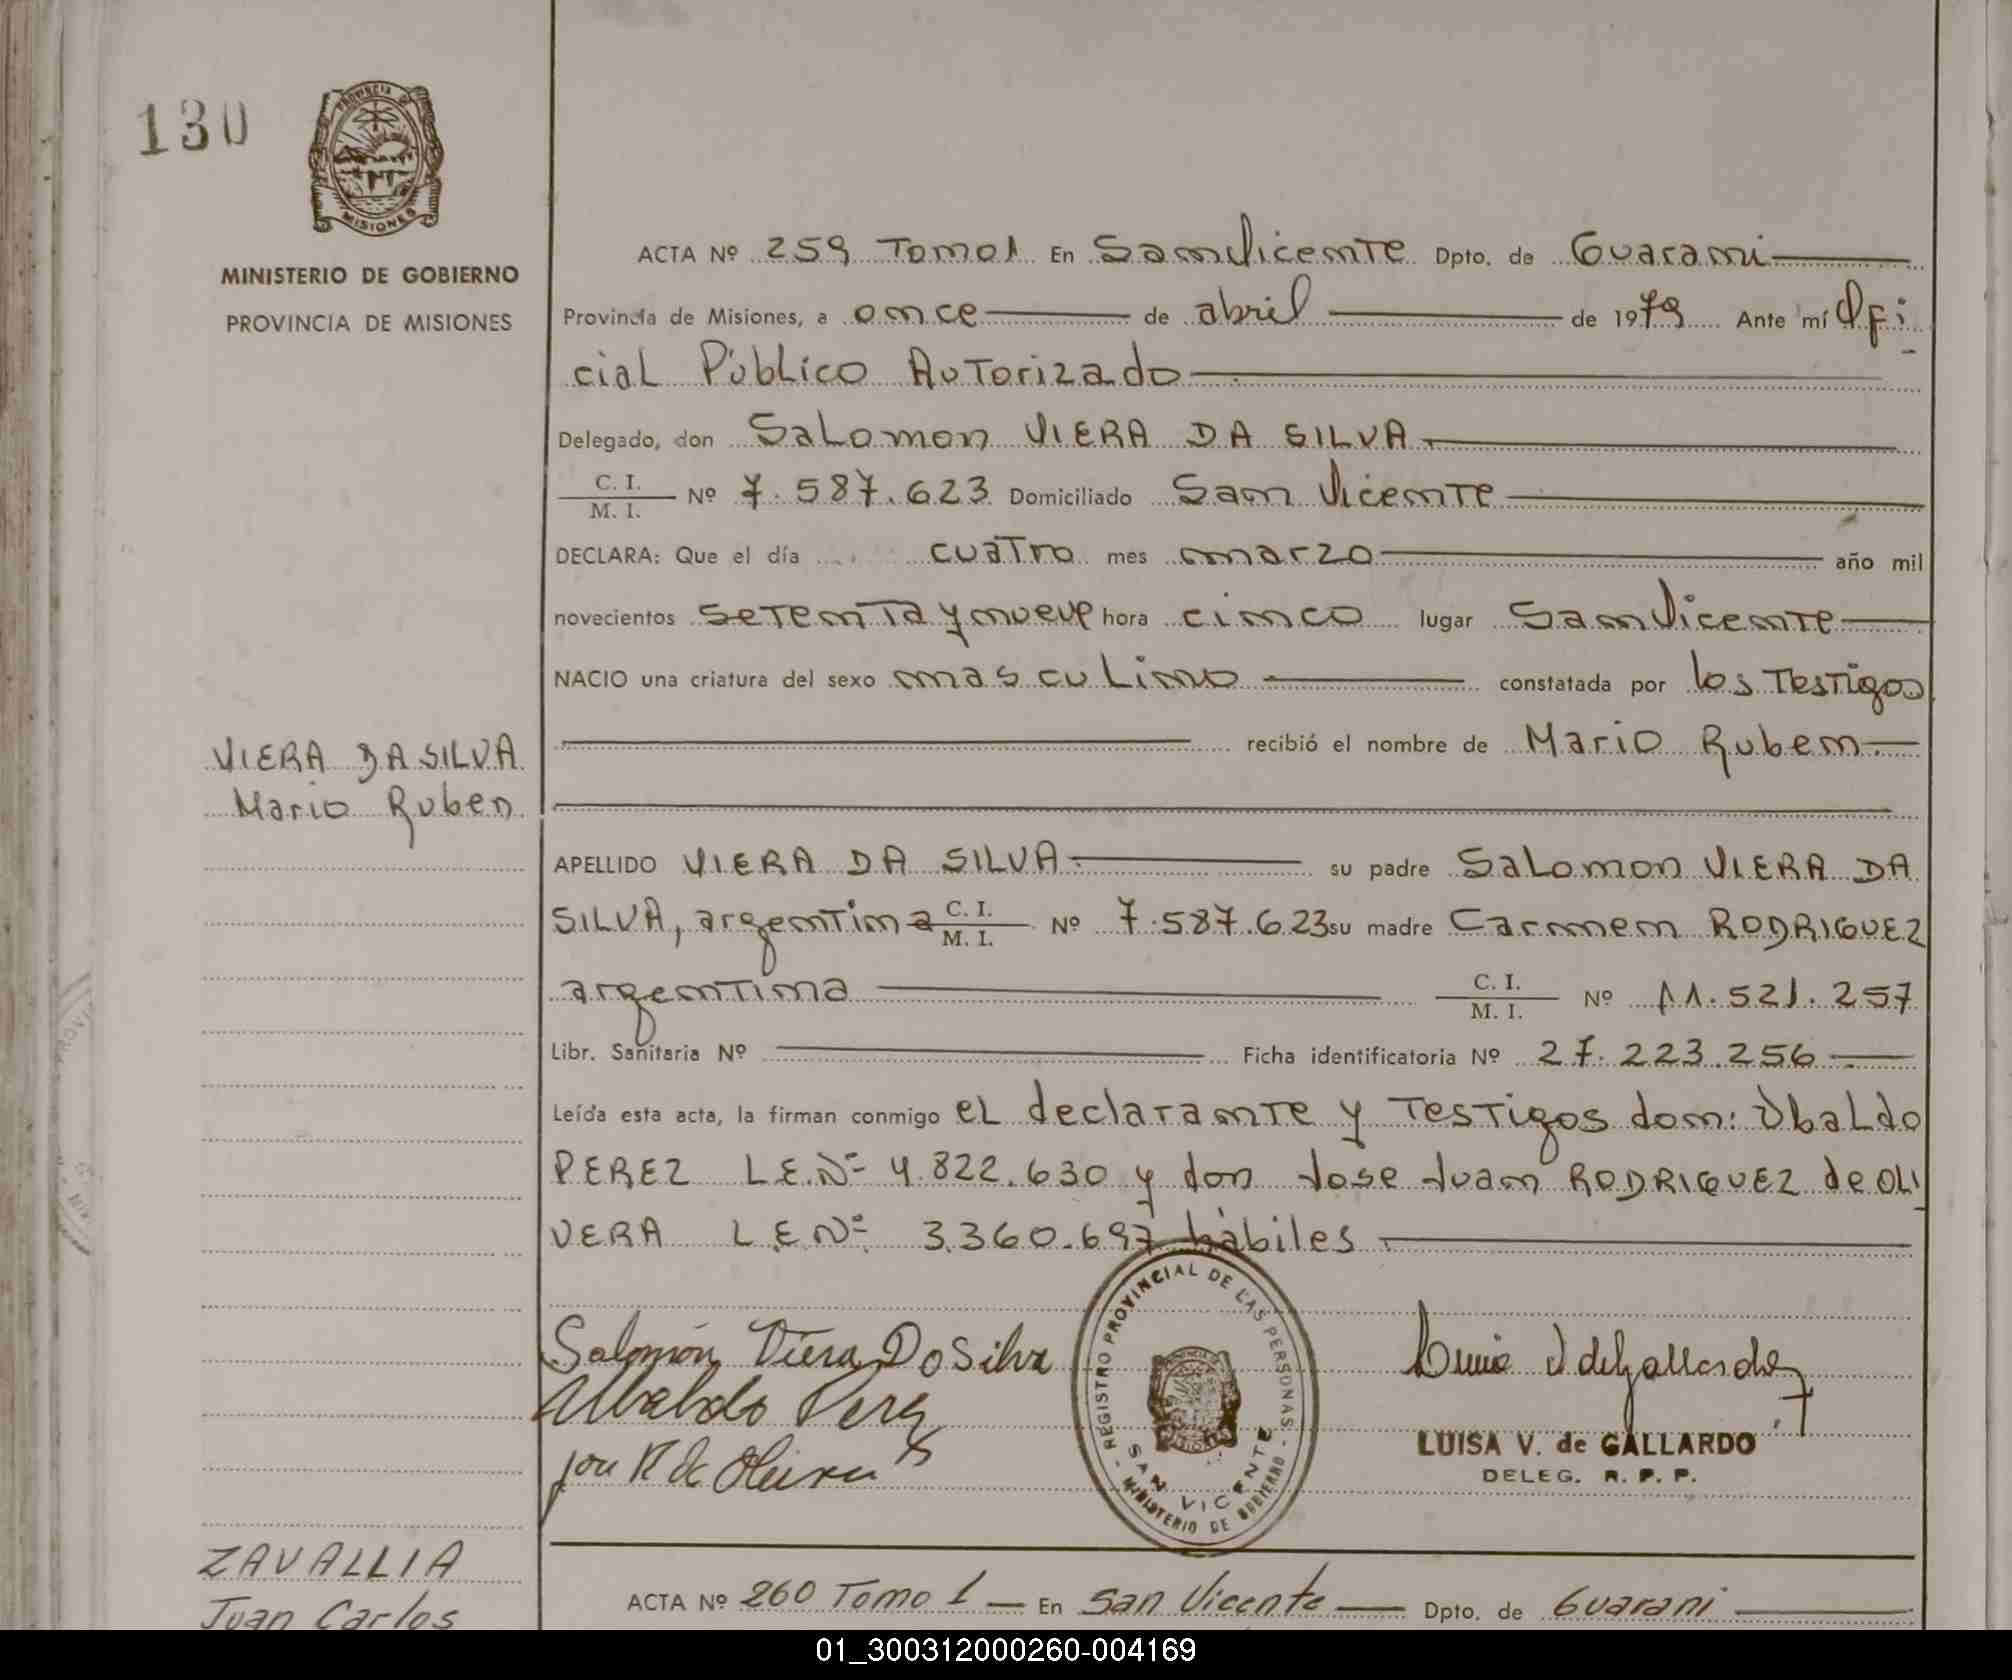 130
PROVINCIA DE
MISIONES
MINISTERIO DE GOBIERNO
PROVINCIA DE MISIONES
ACTA Nº 259 Tomo1 En San Vicente Dpto. de Guarani
Provincia de Misiones, a once de abril de 1979 Ante mí Ofi
cial Público Autorizado
Delegado, don Salomon VIERA DA SILVA
C. I.
M. I. Nº 7.587.623 Domiciliado San Vicente
DECLARA: Que el día cuatro mes marzo año mil
novecientos setenta y nueve hora cinco lugar San Vicente
NACIO una criatura del sexo masculino constatada por los Testigos
recibió el nombre de Mario Ruben
VIERA DA SILVA
Mario Ruben
APELLIDO VIERA DA SILVA su padre Salomon VIERA DA
SILVA, argentina C. I. M. I. Nº 7.587.623 su madre Carmen RODRIGUEZ
argentina C. I. M. I. Nº 11.521.257
Libr. Sanitaria Nº Ficha identificatoria Nº 27.223.256
Leída esta acta, la firman conmigo el declarante y Testigos don: Ubaldo
PEREZ L.E.Nº 4.822.630 y don Jose Juan RODRIGUEZ de OLI
VERA L.E Nº 3.360.697 hábiles
Salomón Viera Da Silva
Ubaldo Perez
R de Olivera
REGISTRO PROVINCIAL DE LAS PERSONAS
SAN VICENTE
MINISTERIO DE GOBIERNO
V de Gallardo
LUISA V. de GALLARDO
DELEG. R. P. P.
ZAVALLIA
Juan Carlos
ACTA Nº 260 Tomo 1 En San Vicente Dpto. de Guarani
01_300312000260-004169